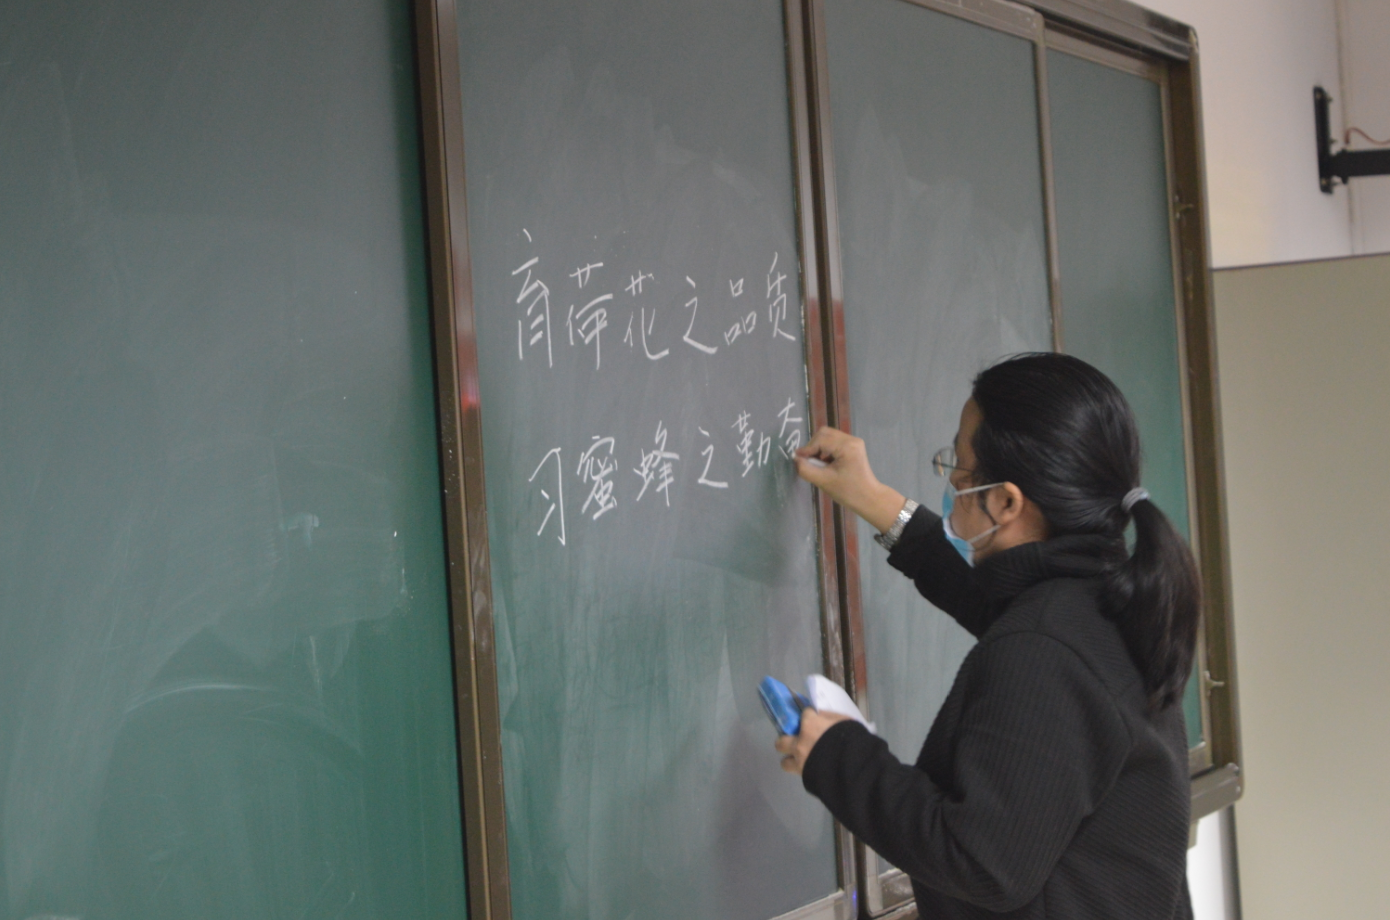 育荷花之品质
习蜜蜂之勤奋